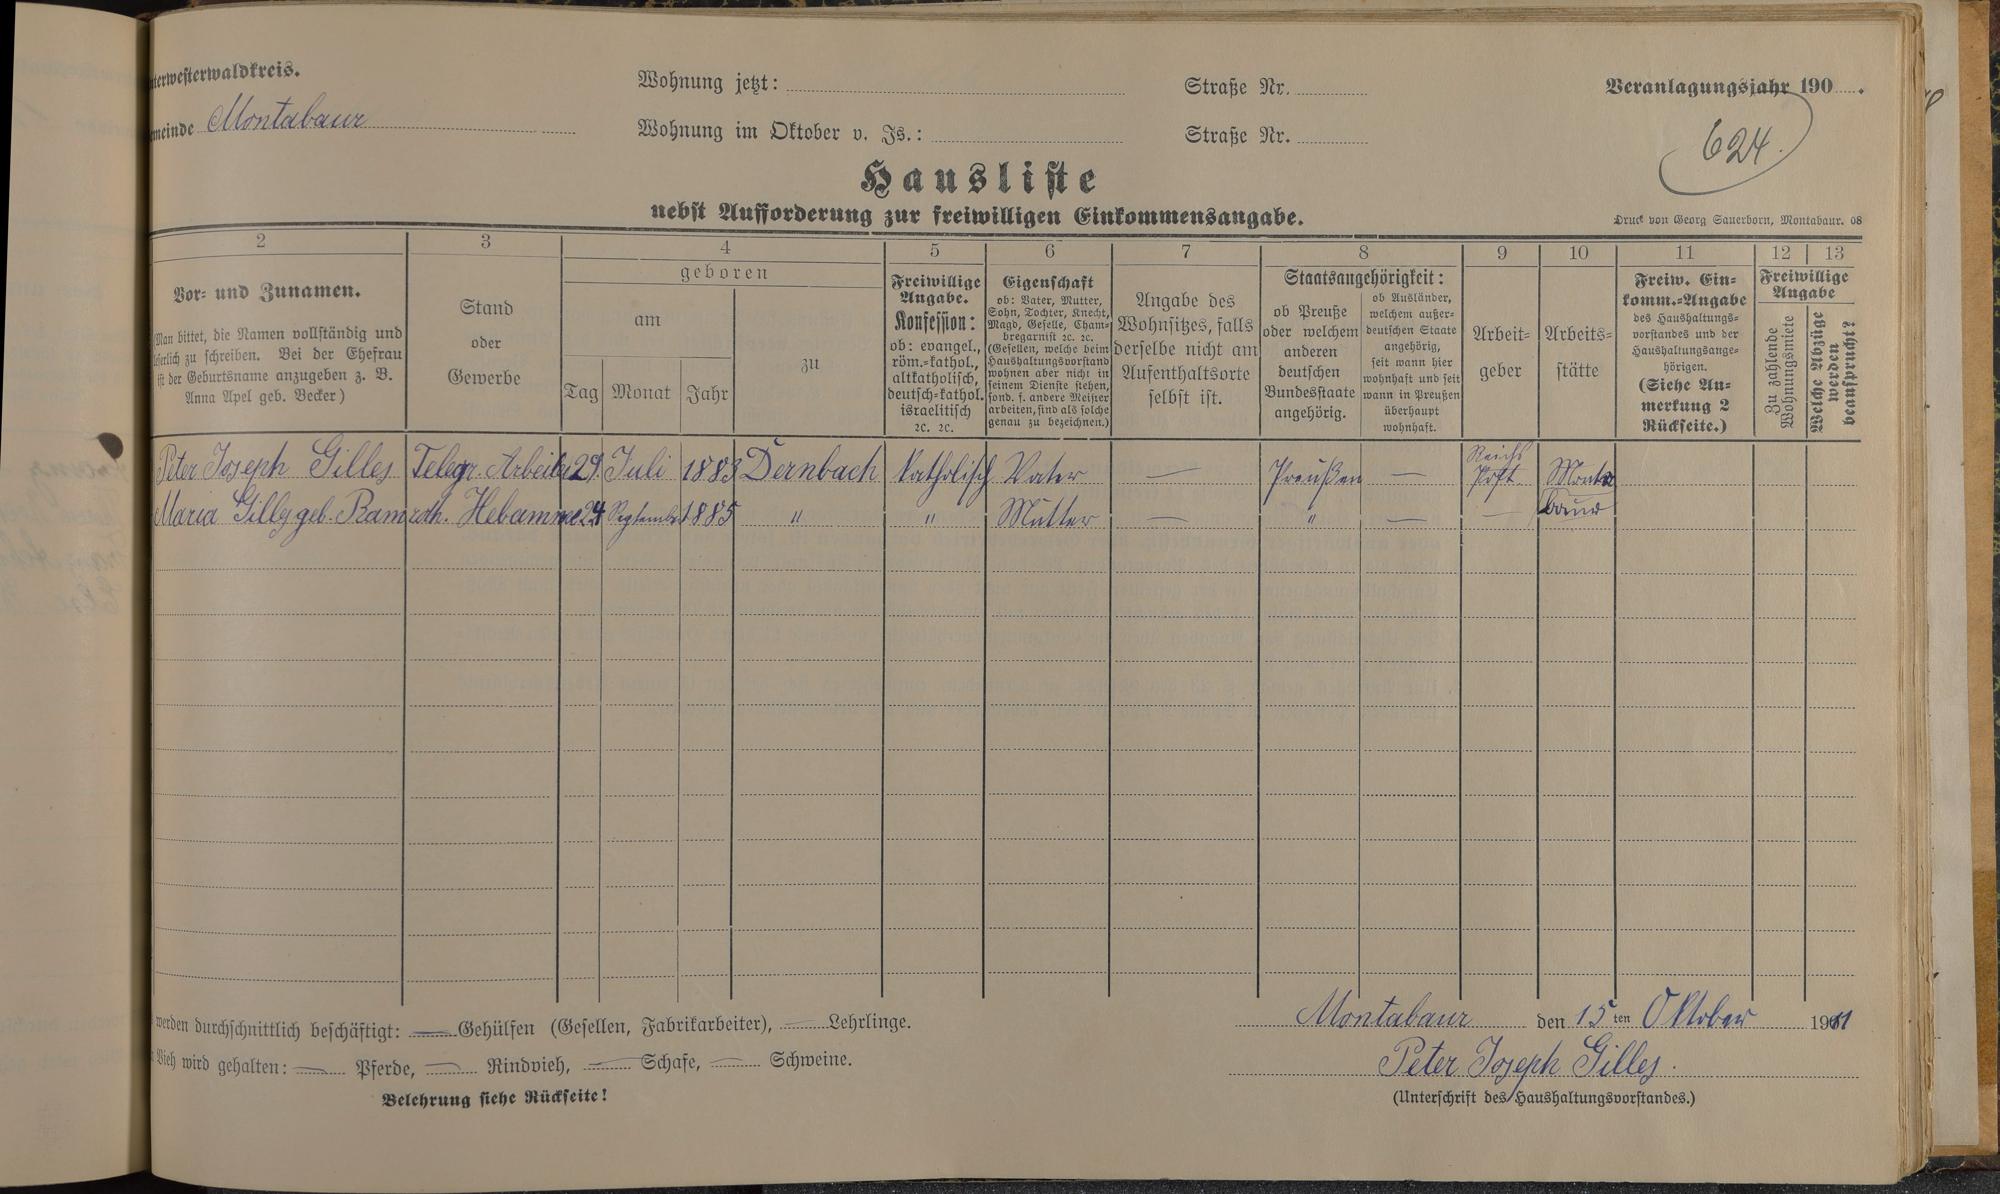 nterwesterwaldkreis.
Wohnung jetzt:
Straße Nr.
Veranlagungsjahr 190 .
emeinde Montabaur
Wohnung im Oktober v. Js.:
Straße Nr.
624.
Hausliste
nebst Aufforderung zur freiwilligen Einkommensangabe.
Druck von Georg Sauerborn, Montabaur. 08
2
Vor- und Zunamen.
(Man bittet, die Namen vollständig und
leserlich zu schreiben. Bei der Ehefrau
ist der Geburtsname anzugeben z. B.
Anna Apel geb. Becker)
3
Stand
oder
Gewerbe
4
geboren
am
Tag
Monat
Jahr
zu
5
Freiwillige
Angabe.
Konfession:
ob: evangel.,
röm.-kathol.,
altkatholisch,
deutsch-kathol.
israelitisch
ꝛc. ꝛc.
6
Eigenschaft
ob: Vater, Mutter,
Sohn, Tochter, Knecht,
Magd, Geselle, Cham-
bregarnist ꝛc. ꝛc.
(Gesellen, welche beim
Haushaltungsvorstand
wohnen aber nicht in
seinem Dienste stehen,
sond. f. andere Meister
arbeiten, sind als solche
genau zu bezeichnen.)
7
Angabe des
Wohnsitzes, falls
derselbe nicht am
Aufenthaltsorte
selbst ist.
8
Staatsangehörigkeit:
ob Preuße
oder welchem
anderen
deutschen
Bundesstaate
angehörig.
ob Ausländer,
welchem außer-
deutschen Staate
angehörig,
seit wann hier
wohnhaft und seit
wann in Preußen
überhaupt
wohnhaft.
9
Arbeit-
geber
10
Arbeits-
stätte
11
Freiw. Ein-
komm.-Angabe
des Haushaltungs-
vorstandes und der
Haushaltungsange-
hörigen.
(Siehe An-
merkung 2
Rückseite.)
12 13
Freiwillige
Angabe
Zu zahlende
Wohnungsmiete
Welche Abzüge
werden
beansprucht?
Peter Joseph Gilles Telegr. Arbeiter 29. Juli 1883 Dernbach katholisch Vater — Preußen — Reichs Post Monta
Maria Gilles geb. Ramroth. Hebamme 24 September 1885 " " Mutter — " — — baur
werden durchschnittlich beschäftigt: — Gehülfen (Gesellen, Fabrikarbeiter), — Lehrlinge.
Vieh wird gehalten: — Pferde, — Rindvieh, — Schafe, — Schweine.
Belehrung siehe Rückseite!
Montabaur den 15 ten Oktober 1911
Peter Joseph Gilles.
(Unterschrift des Haushaltungsvorstandes.)